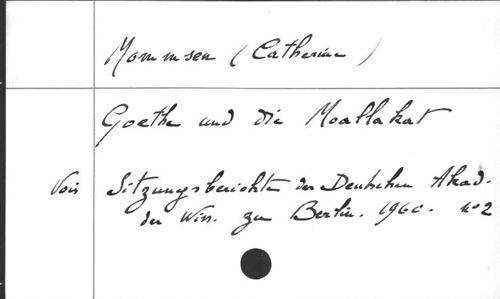 Mommsen (Catherine)
Goethe und die Moallakat
Voir Sitzungsberichte der Deutschen Akad.
der Wiss. zu Berlin. 1960. n° 2